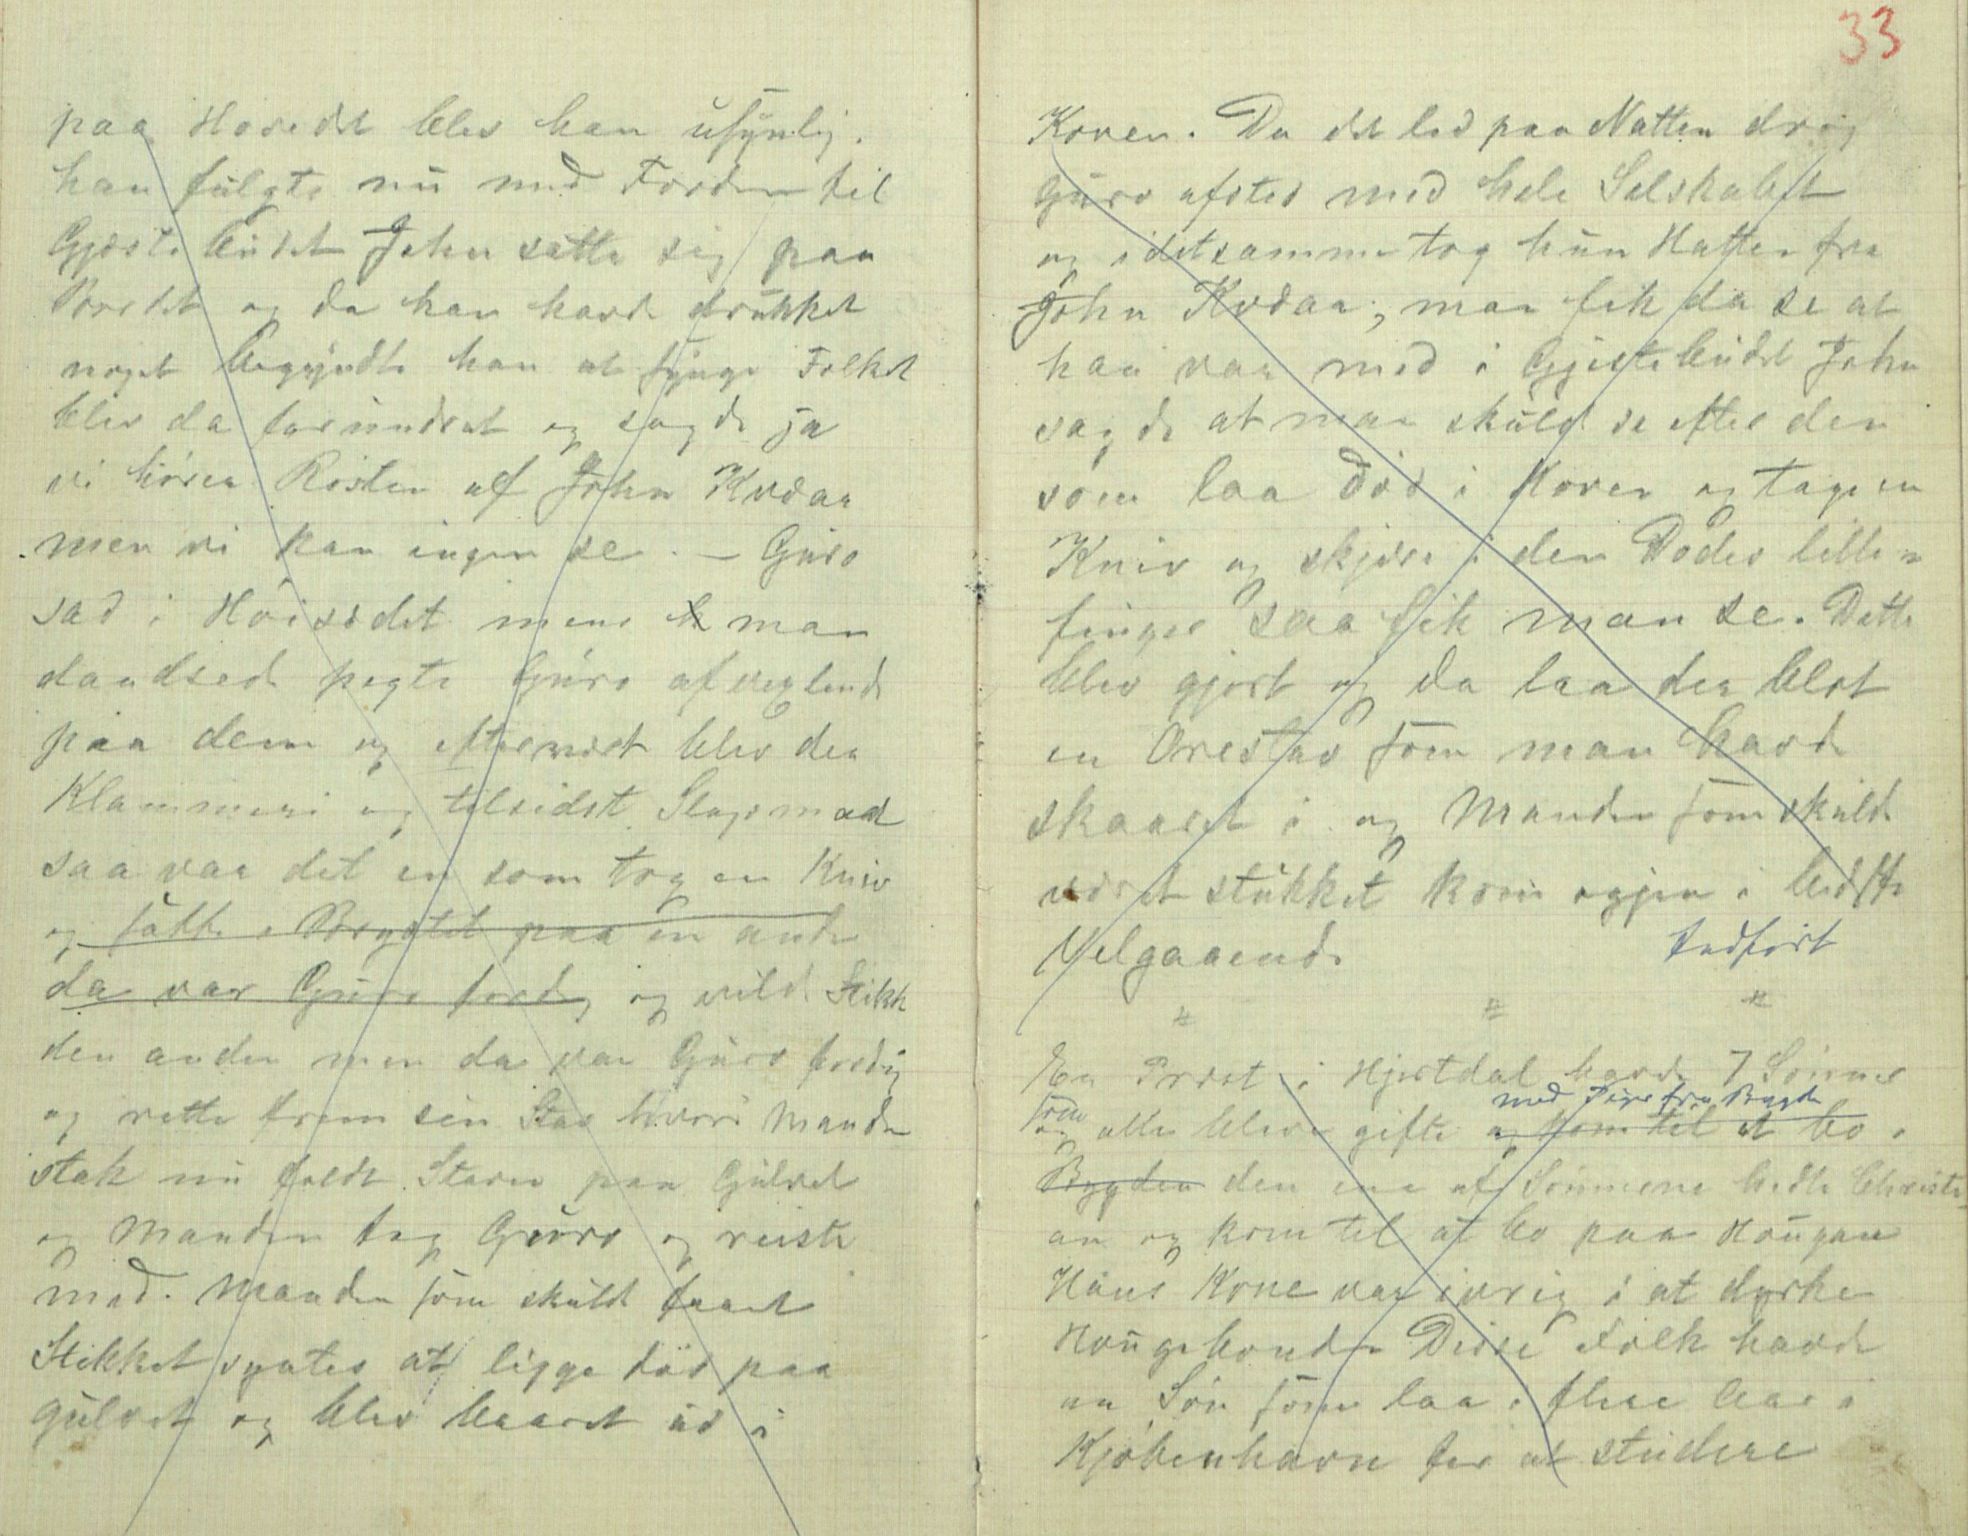 paa Hovedet blev han usynlig.
han fulgte nu med Færden til
Gjæstebudet John satte sig paa
Bordet og da han havde drukket
noget begyndte han at synge Folket
blev da forundret og sagde ja
vi hører Røsten af John Kvdaa
men vi kan ingen se. – Guro
sad i Høisædet mens man
dandsede pegte Guro afvexlende
paa dem og efternæst blev der
Klammeri og tilsidst Slagsmaal
saa var det en som tog en Kniv
og satte Brystet paa en anden
da var Guro færdig og vilde Stikke
den anden men da var Guro færdig
og rette frem sin Stav hvori Manden
stak nu faldt Staven paa Gulvet
og Manden tog Guro og reiste
med. Manden som skulde faaet
Stikket syntes at ligge død paa
gulvet og blev baaret ud i
33
Koven. Da det led paa Natten drog
Guro afsted med hele Selskabet
og i detsamme tog hun Hatten fra
John Kvdaa, man fik da se at
han var med i Gjestebudet John
sagde at man skulde se efter den
som laa død i Koven og tage en
Kniv og skjære i den Dødes lille
finger saa fik man se. Dette
blev gjort og da laa der blot
en Orestav som man havde
skaaret i og Manden som skulde
været stukket kom igjen i bedste
Velgaaende
Indført
# # #
En Præst i Hjertdal havde 7 Sønner
med Piger fra Bygden
som alle bleve gifte og kom til at bo i
Bygden den ene af Sønnerne hedte Christi
an og kom til at bo paa Haugan
Hans Kone var ivrig i at dyrke
Haugebonden Disse Folk havde
en Søn som laa i flere Aar i
Kjøbenhavn for at studere